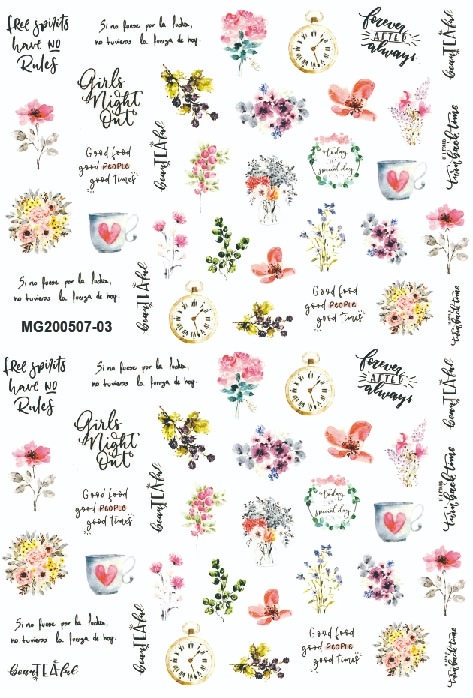 free spirits
have NO
Rules
Si no fuese por la lucha,
no tuviera la fuerza de hoy.
forever
AFTER
always
Girls
Night
Out
Good food
good PEOPLE
good times
today
is
special day
turn back time
Si no fuese por la lucha,
no tuviera la fuerza de hoy.
MG200507-03
Good food
good PEOPLE
good times
turn back time
free spirits
have NO
Rules
Si no fuese por la lucha,
no tuviera la fuerza de hoy.
forever
AFTER
always
Girls
Night
Out
Good food
good PEOPLE
good times
today
is
special day
turn back time
Si no fuese por la lucha,
no tuviera la fuerza de hoy.
Good food
good PEOPLE
good times
turn back time